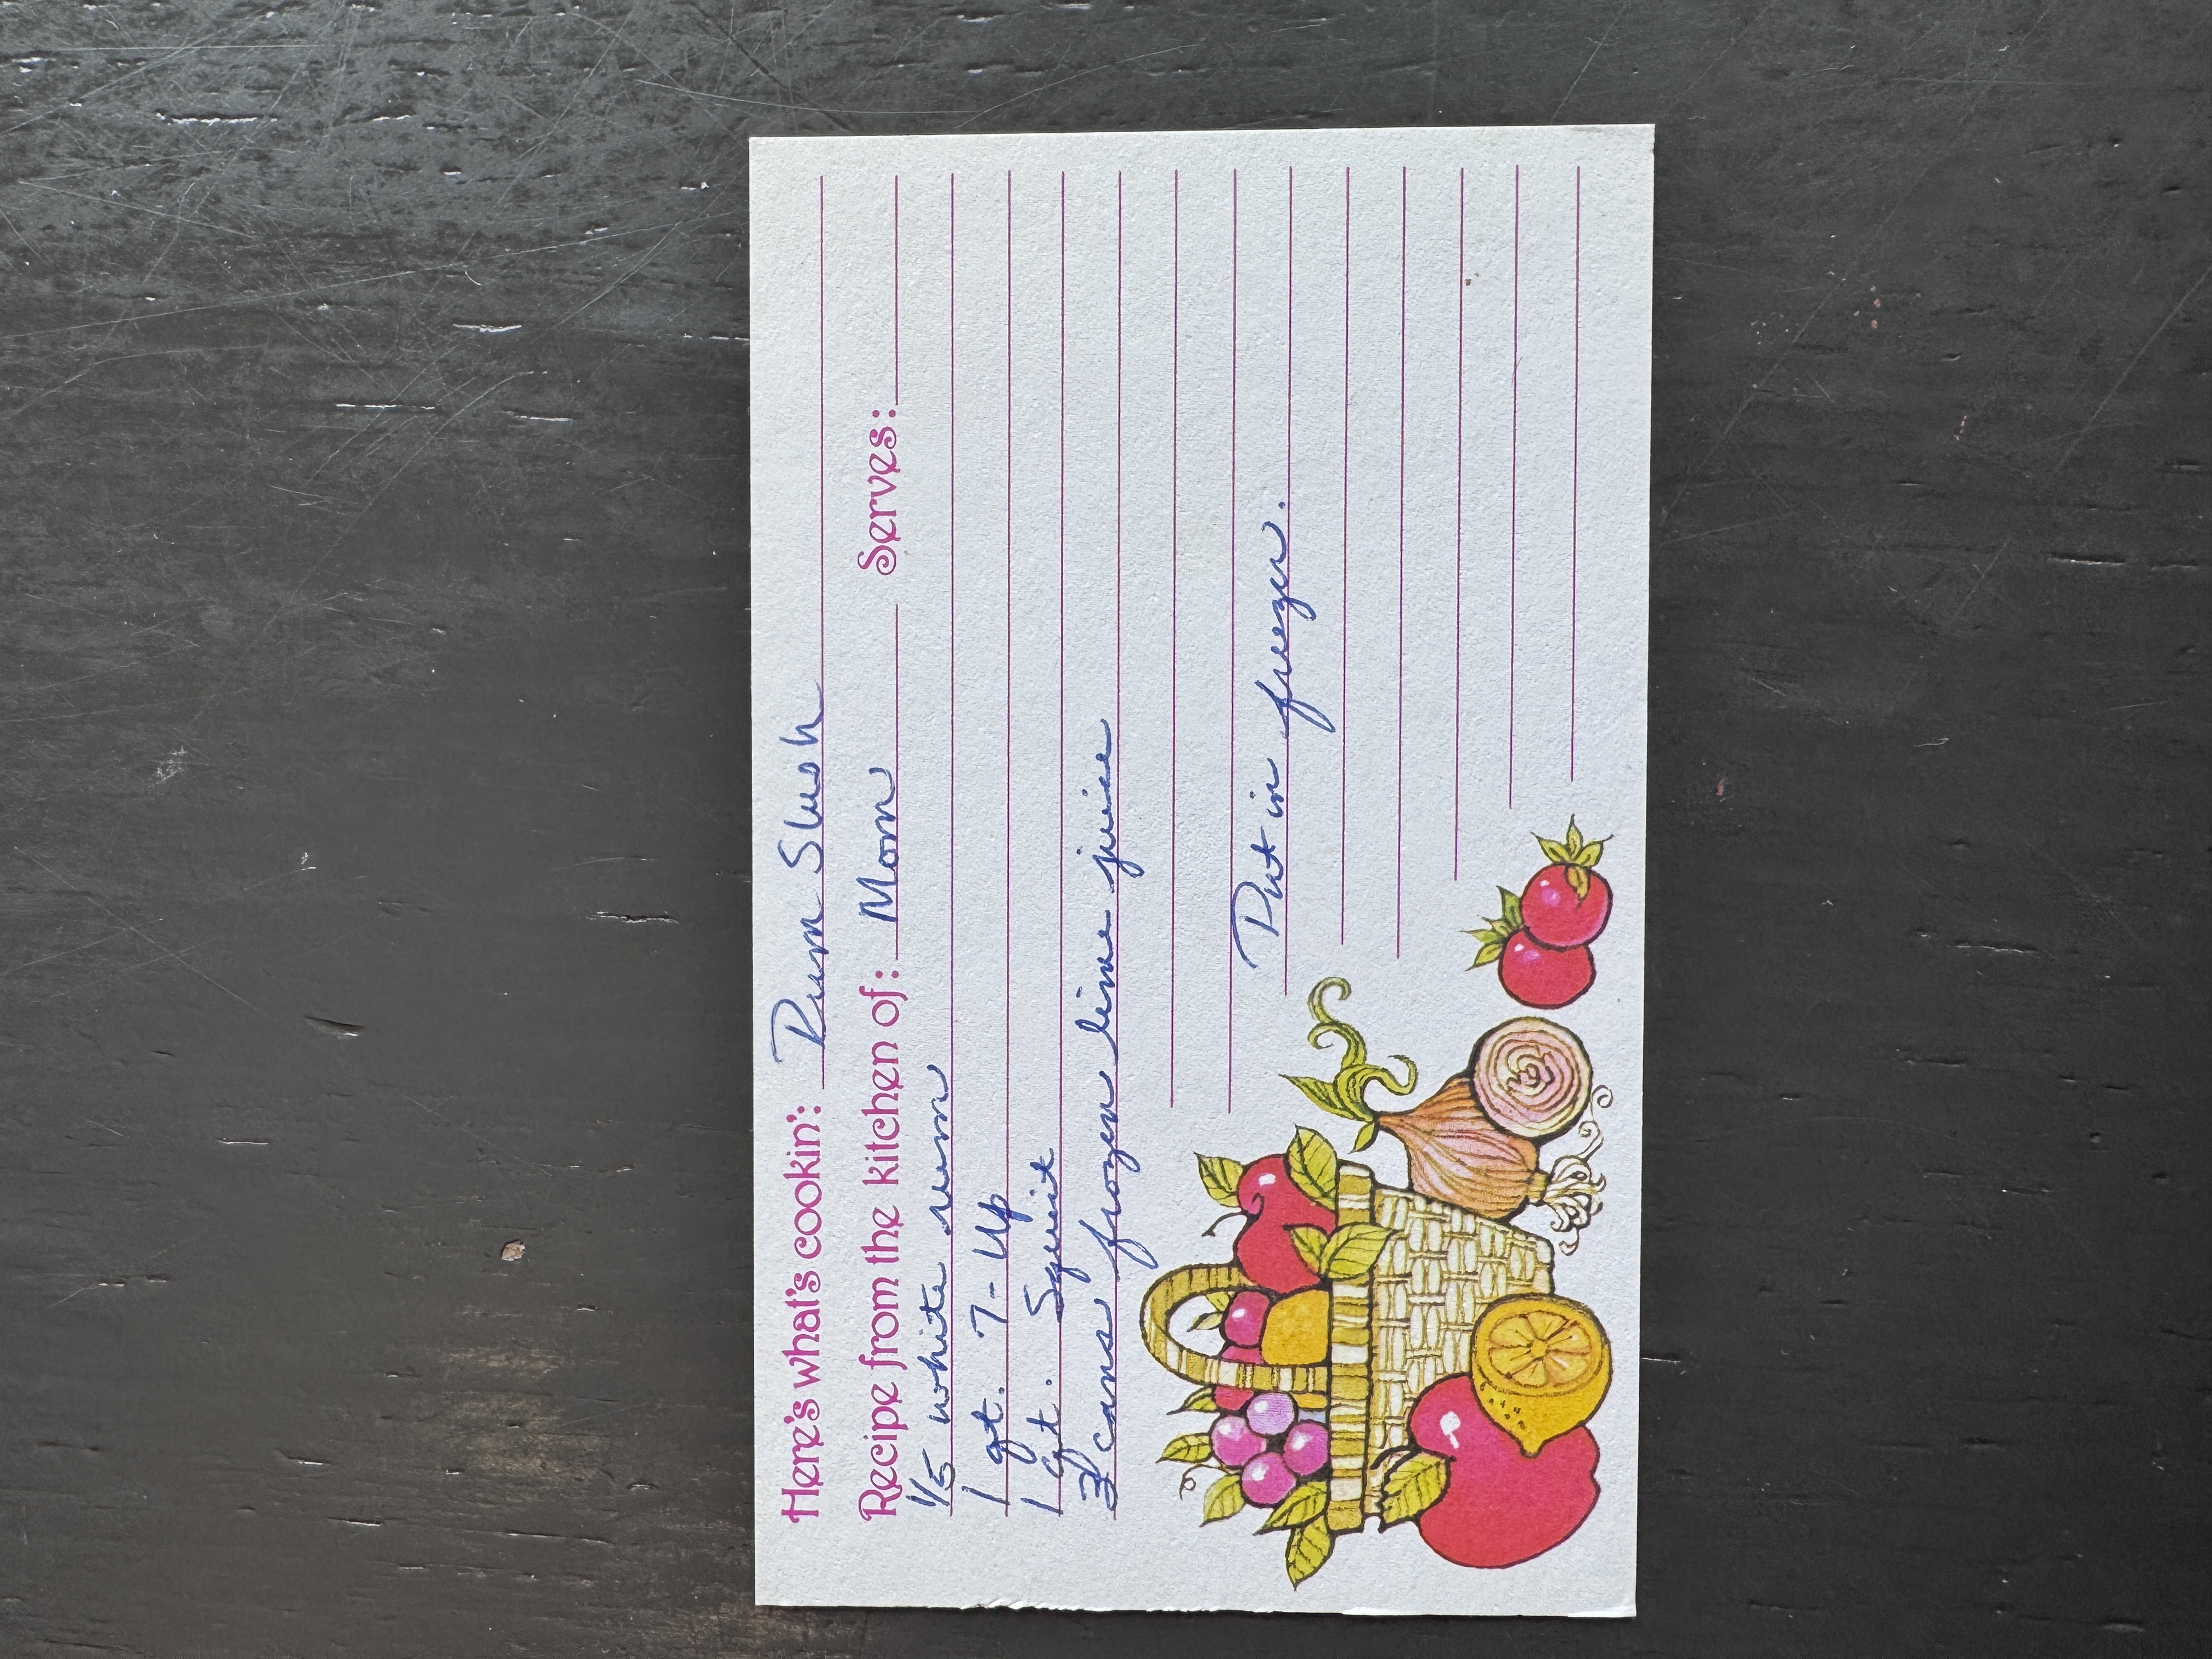 Here's what's cookin': Rum Slush
Recipe from the kitchen of: Mom Serves:
1/5 white rum
1 qt. 7-Up
1 qt. Squirt
3 cans frozen lime juice
Put in freezer.